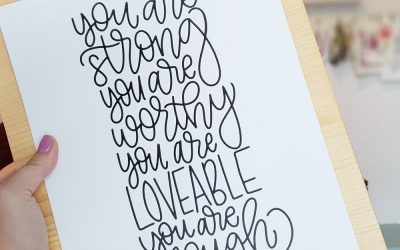 you are
strong
you are
worthy
you are
LOVEABLE
you are
enough